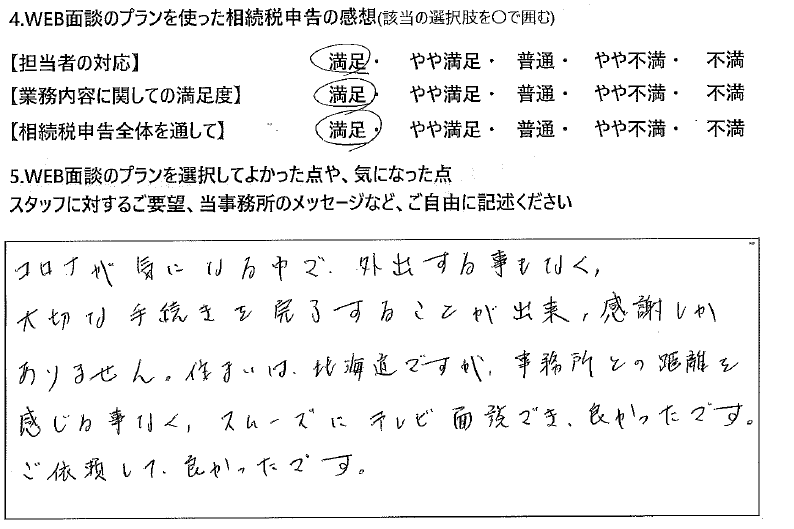 4.WEB面談のプランを使った相続税申告の感想(該当の選択肢を○で囲む)
【担当者の対応】 満足・ やや満足・ 普通・ やや不満・ 不満
【業務内容に関しての満足度】 満足・ やや満足・ 普通・ やや不満・ 不満
【相続税申告全体を通して】 満足・ やや満足・ 普通・ やや不満・ 不満
5.WEB面談のプランを選択してよかった点や、気になった点
スタッフに対するご要望、当事務所のメッセージなど、ご自由に記述ください
コロナが気になる中で、外出する事もなく、
大切な手続きを完了することが出来、感謝しか
ありません。住まいは、北海道ですが、事務所との距離を
感じる事なく、スムーズにテレビ面談でき、良かったです。
ご依頼して、良かったです。